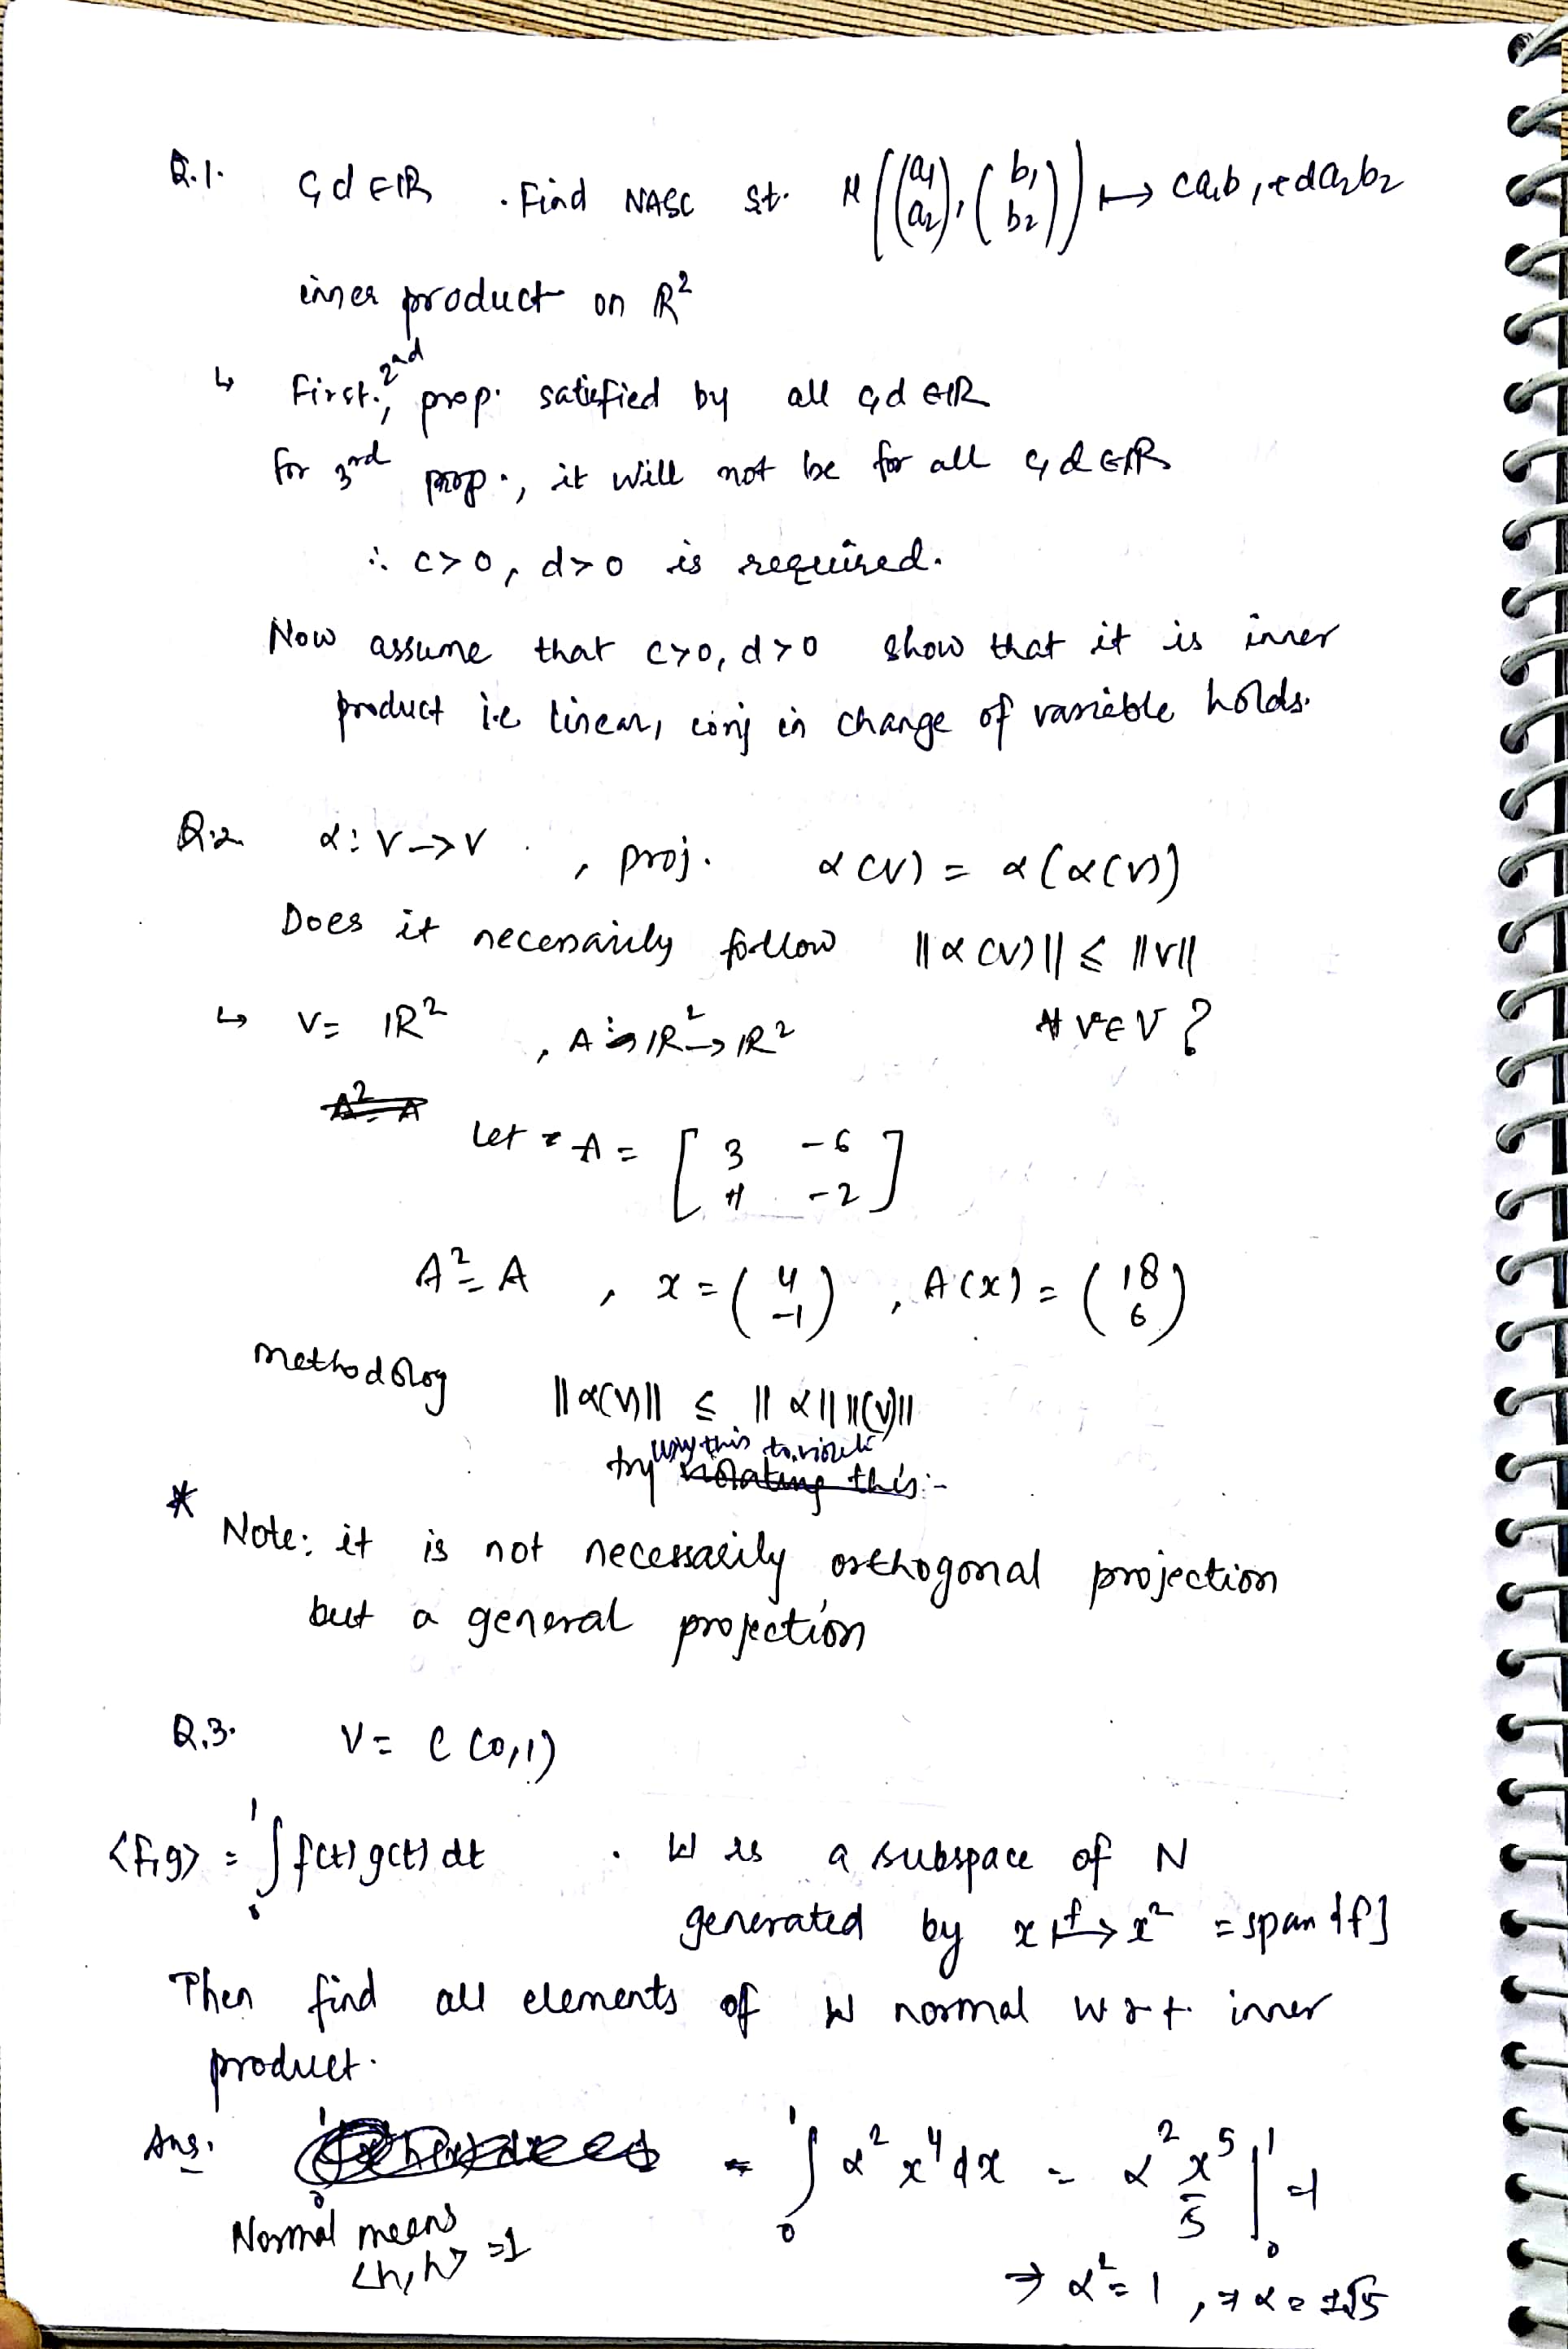 Q.1. c,d ∈ IR . Find NASC st. μ((a1 a2), (b1 b2)) ↦ ca1b1 + da2b2
inner product on R²
↳ First, 2nd prop. satisfied by all c,d ∈ IR
for 3rd prop., it will not be for all c,d ∈ IR
∴ c>0, d>0 is required.
Now assume that c>0, d>0 show that it is inner
product i.e linear, conj in change of variable holds.
Q.2 α: V→V , proj. α(v) = α(α(v))
Does it necessarily follow ||α(v)|| ≤ ||v||
∀ v∈V ?
↳ V= IR² , A: IR²→IR²
A²=A
Let A = [3 -6
1 -2]
A²=A , x=(4 -1) , A(x) = (18 6)
methodolog ||α(v)|| ≤ ||α|| ||(v)||
try using this to violate
violating this:-
* Note: it is not necessarily orthogonal projection
but a general projection
Q.3. V= C(0,1)
<f,g> = ∫₀¹ f(t) g(t) dt . W is a subspace of V
generated by x ↦f x² = span {f}
Then find all elements of W normal w r t. inner
product.
Ans. = ∫₀¹ α² x⁴ dx = α² x⁵/5 |₀¹ =1
Normal means
<h,h> =1
⇒ α² = 1 , ⇒ α = ±√5